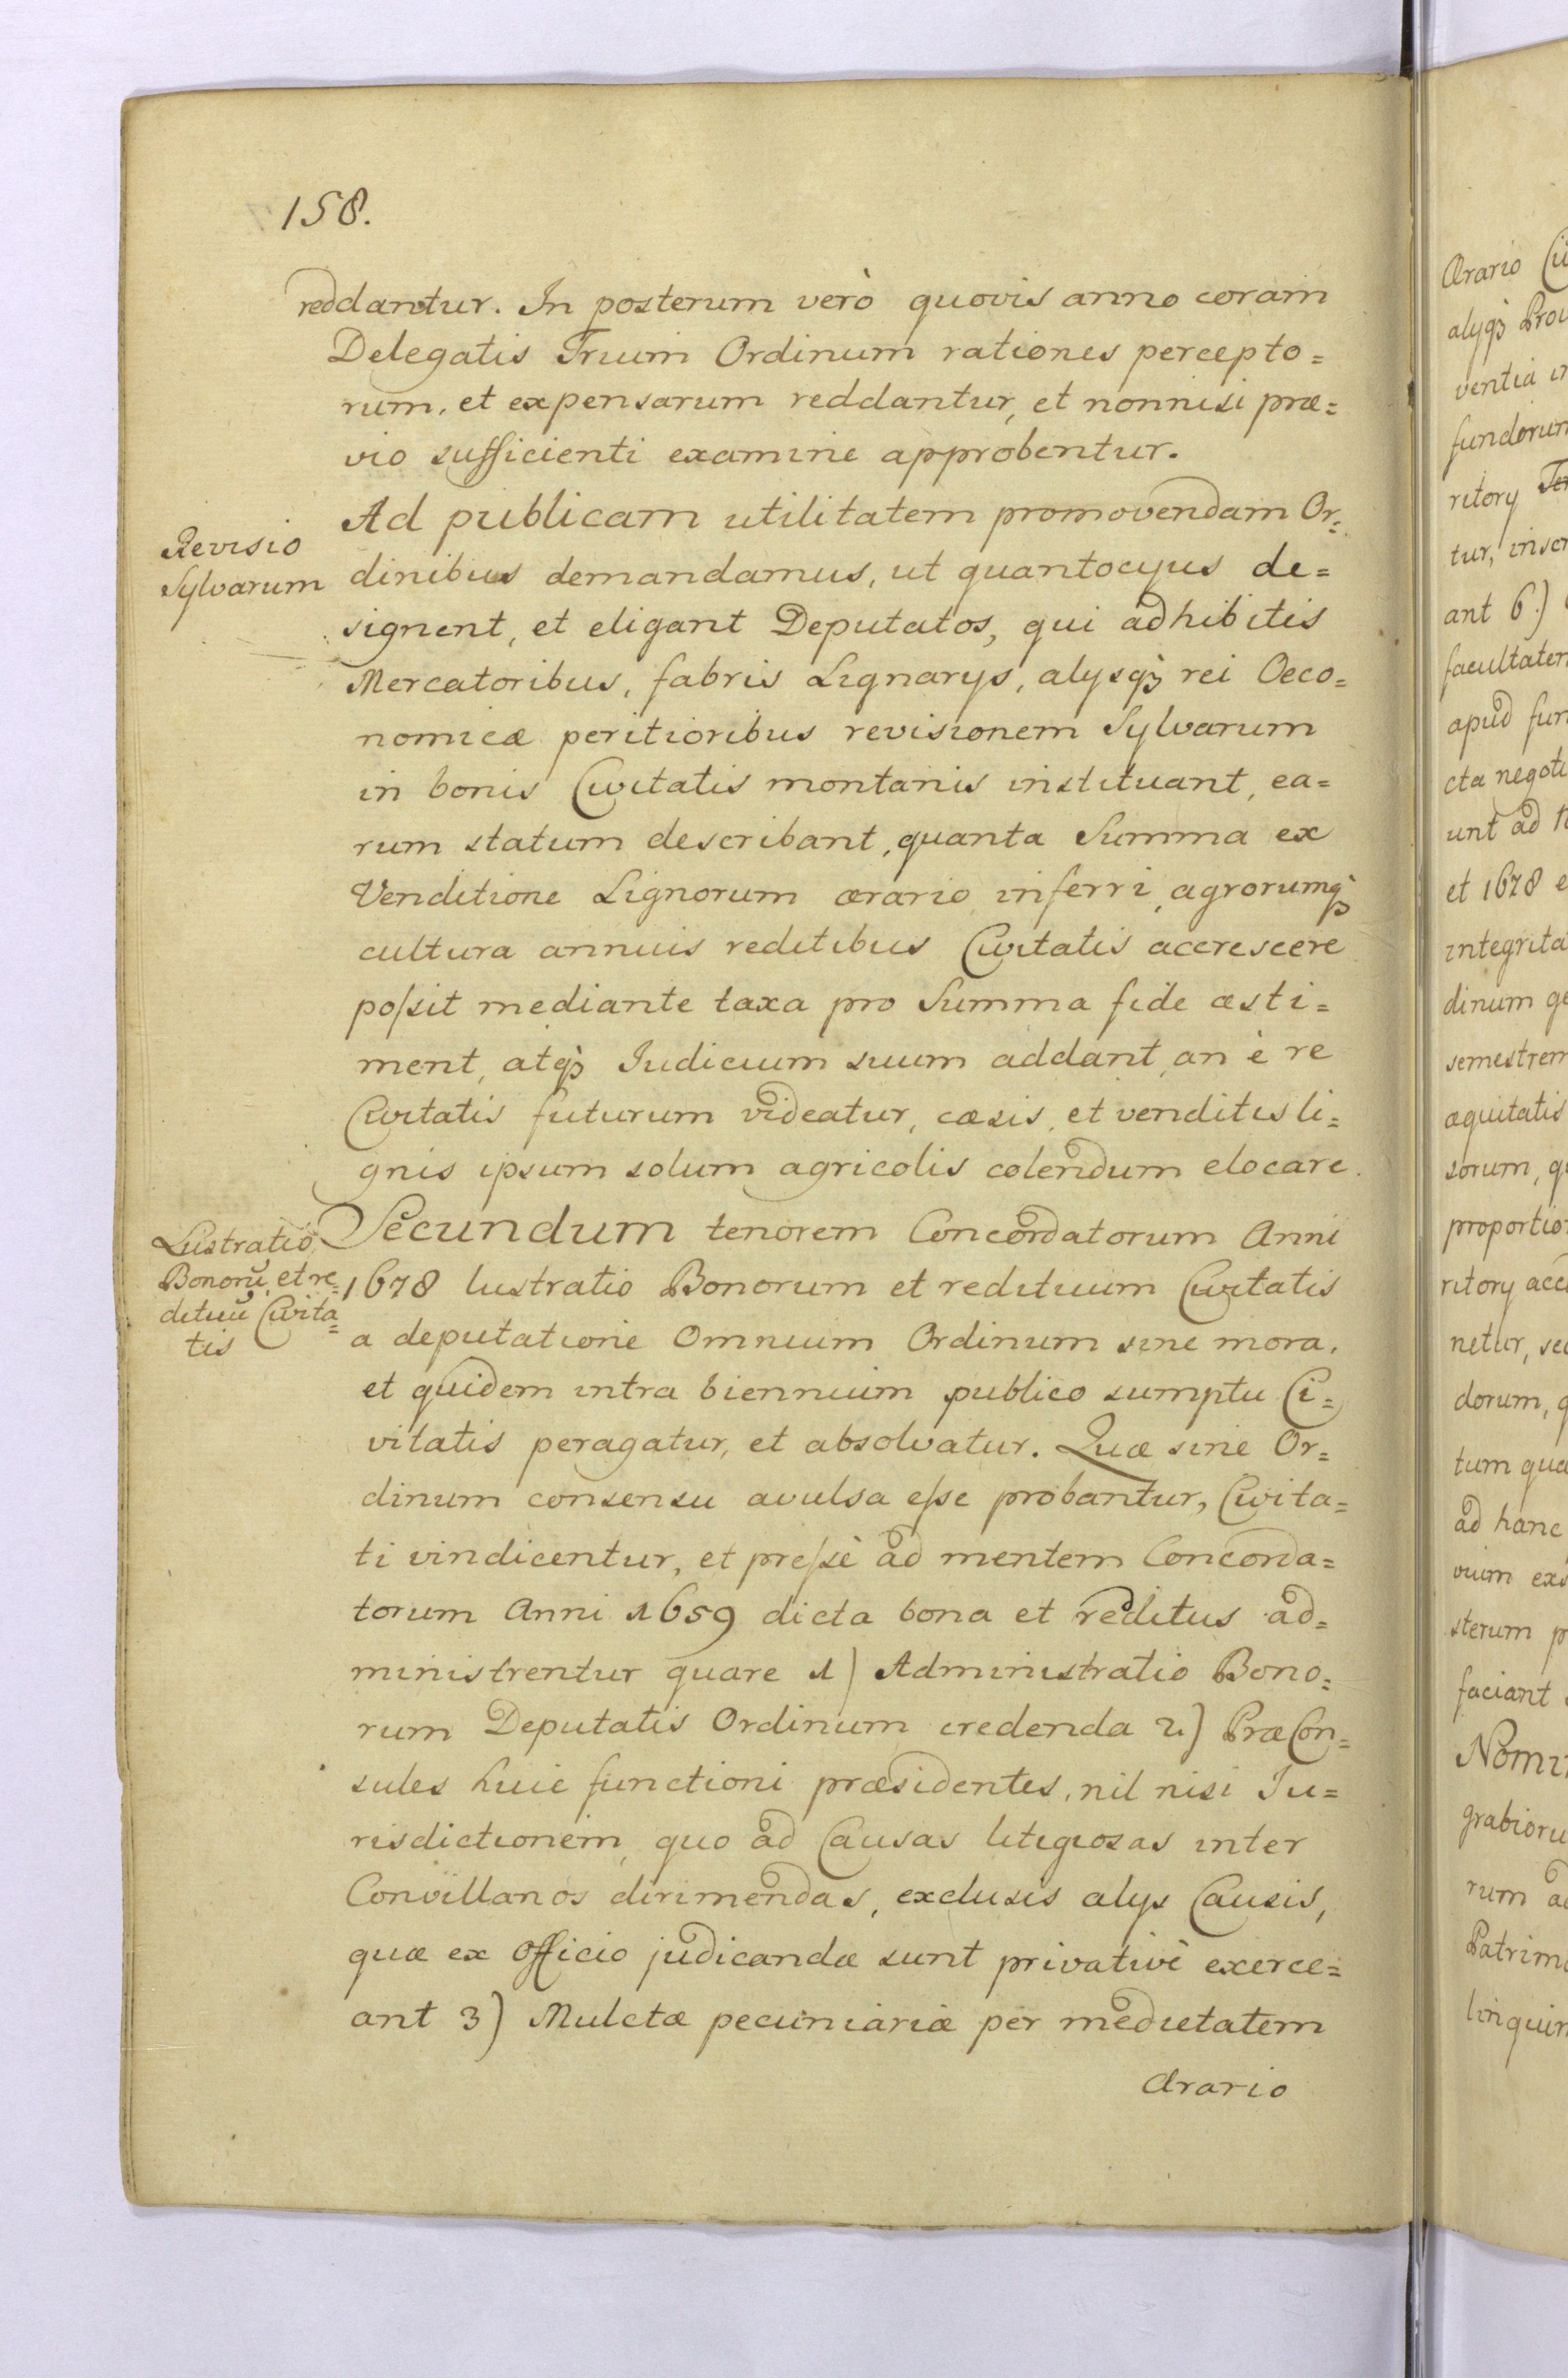 158.
reddantur. In posterum verò quovis anno coram
Delegatis Trium Ordinum rationes percepto=
rum, et expensarum reddantur, et nonnisi præ=
vio sufficienti examine approbentur.
Revisio
Sylvarum
Ad publicam utilitatem promovendam Or=
dinibus demandamus, ut quantocyus de=
signent, et eligant Deputatos, qui adhibitis
Mercatoribus, fabris Lignarys, alysqꝫ rei Oeco=
nomicæ peritioribus revisionem Sylvarum
in bonis Civitatis montanis instituant, ea=
rum statum describant, quanta Summa ex
Venditione Lignorum ærario inferri, agrorumqꝫ
cultura annuis reditibus Civitatis accrescere
poſsit mediante taxa pro Summa fide æsti=
ment, atqꝫ Iudicium suum addant, an è re
Civitatis futurum videatur, cæsis, et venditis li=
gnis ipsum solum agricolis colendum elocare.
Lustratio
Bonorū, et re=
dituū Civita=
tis
Secundum tenorem Concordatorum Anni
1678 lustratio Bonorum et redituum Civitatis
a deputatione Omnium Ordinum sine mora,
et quidem intra biennium publico sumptu Ci=
vitatis peragatur, et absolvatur. Quæ sine Or=
dinum consensu avulsa eſse probantur, Civita=
ti vindicentur, et preſsè ad mentem Concorda=
torum Anni 1659 dicta bona et reditus ad=
ministrentur quare 1) Administratio Bono=
rum Deputatis Ordinum credenda 2.) PræCon=
sules huic functioni præsidentes, nil nisi Iu=
risdictionem, quo ad Causas litigiosas inter
Convillanos dirimendas, exclusis alys Causis,
quæ ex Officio judicandæ sunt privativè exerce=
ant 3) Mulctæ pecuniariæ per medietatem
Ærario
Ærario
alyqꝫ
ventia
ritory
tur,
ant 6.)
apud
cta
unt ad
et 1678
dinum
æquitatis
sorum,
ritory
netur,
dorum,
tum
ad hanc
sterum
faciant
rum